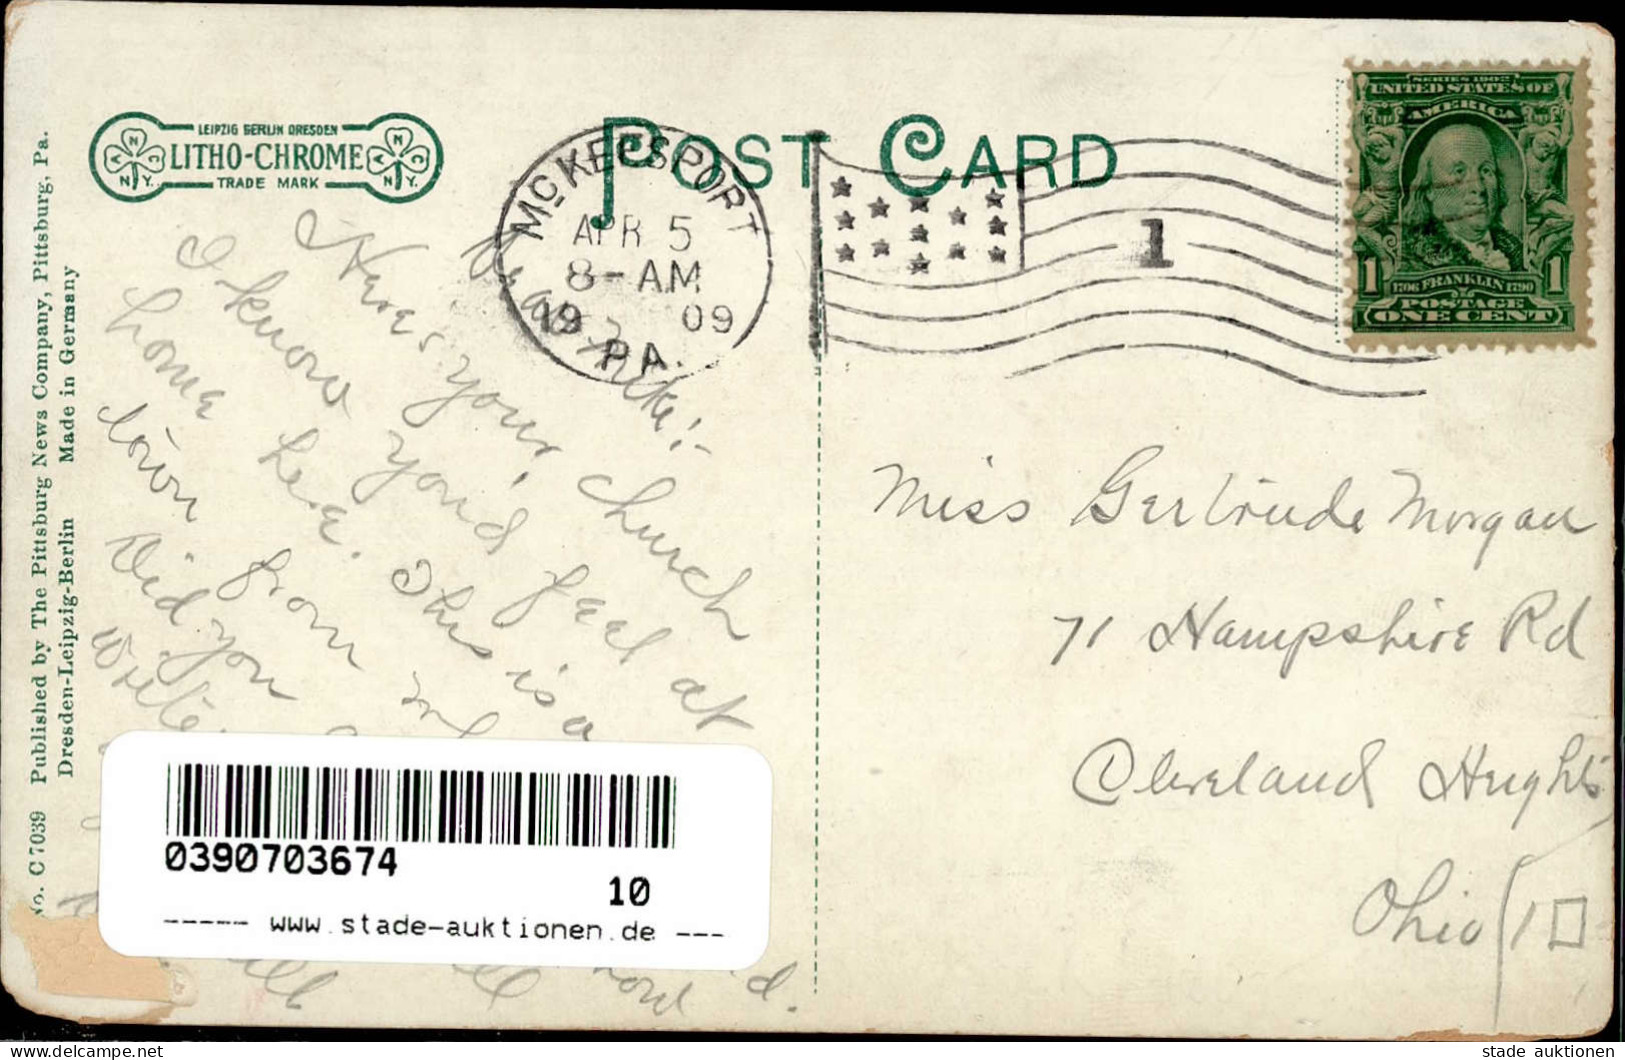 LEIPZIG BERLIN DRESDEN
LITHO-CHROME
TRADE MARK
A N C
N.Y.
A N C
N.Y.
POST CARD
McKEESPORT
APR 5
8-AM
19 09
PA.
1
SERIES 1902
UNITED STATES OF
AMERICA
1 1
1706 FRANKLIN 1790
POSTAGE
ONE CENT
No. C7039 Published by The Pittsburg News Company, Pittsburg, Pa.
Dresden-Leipzig-Berlin Made in Germany
Here's your church
I know you'd feel at
home here. This is a
town from
Did you
write
Miss Gertrude Morgan
71 Hampshire Rd
Cleveland Heights
Ohio
0390703674
10
----- www.stade-auktionen.de ---
stade auktionen
delcampe.net